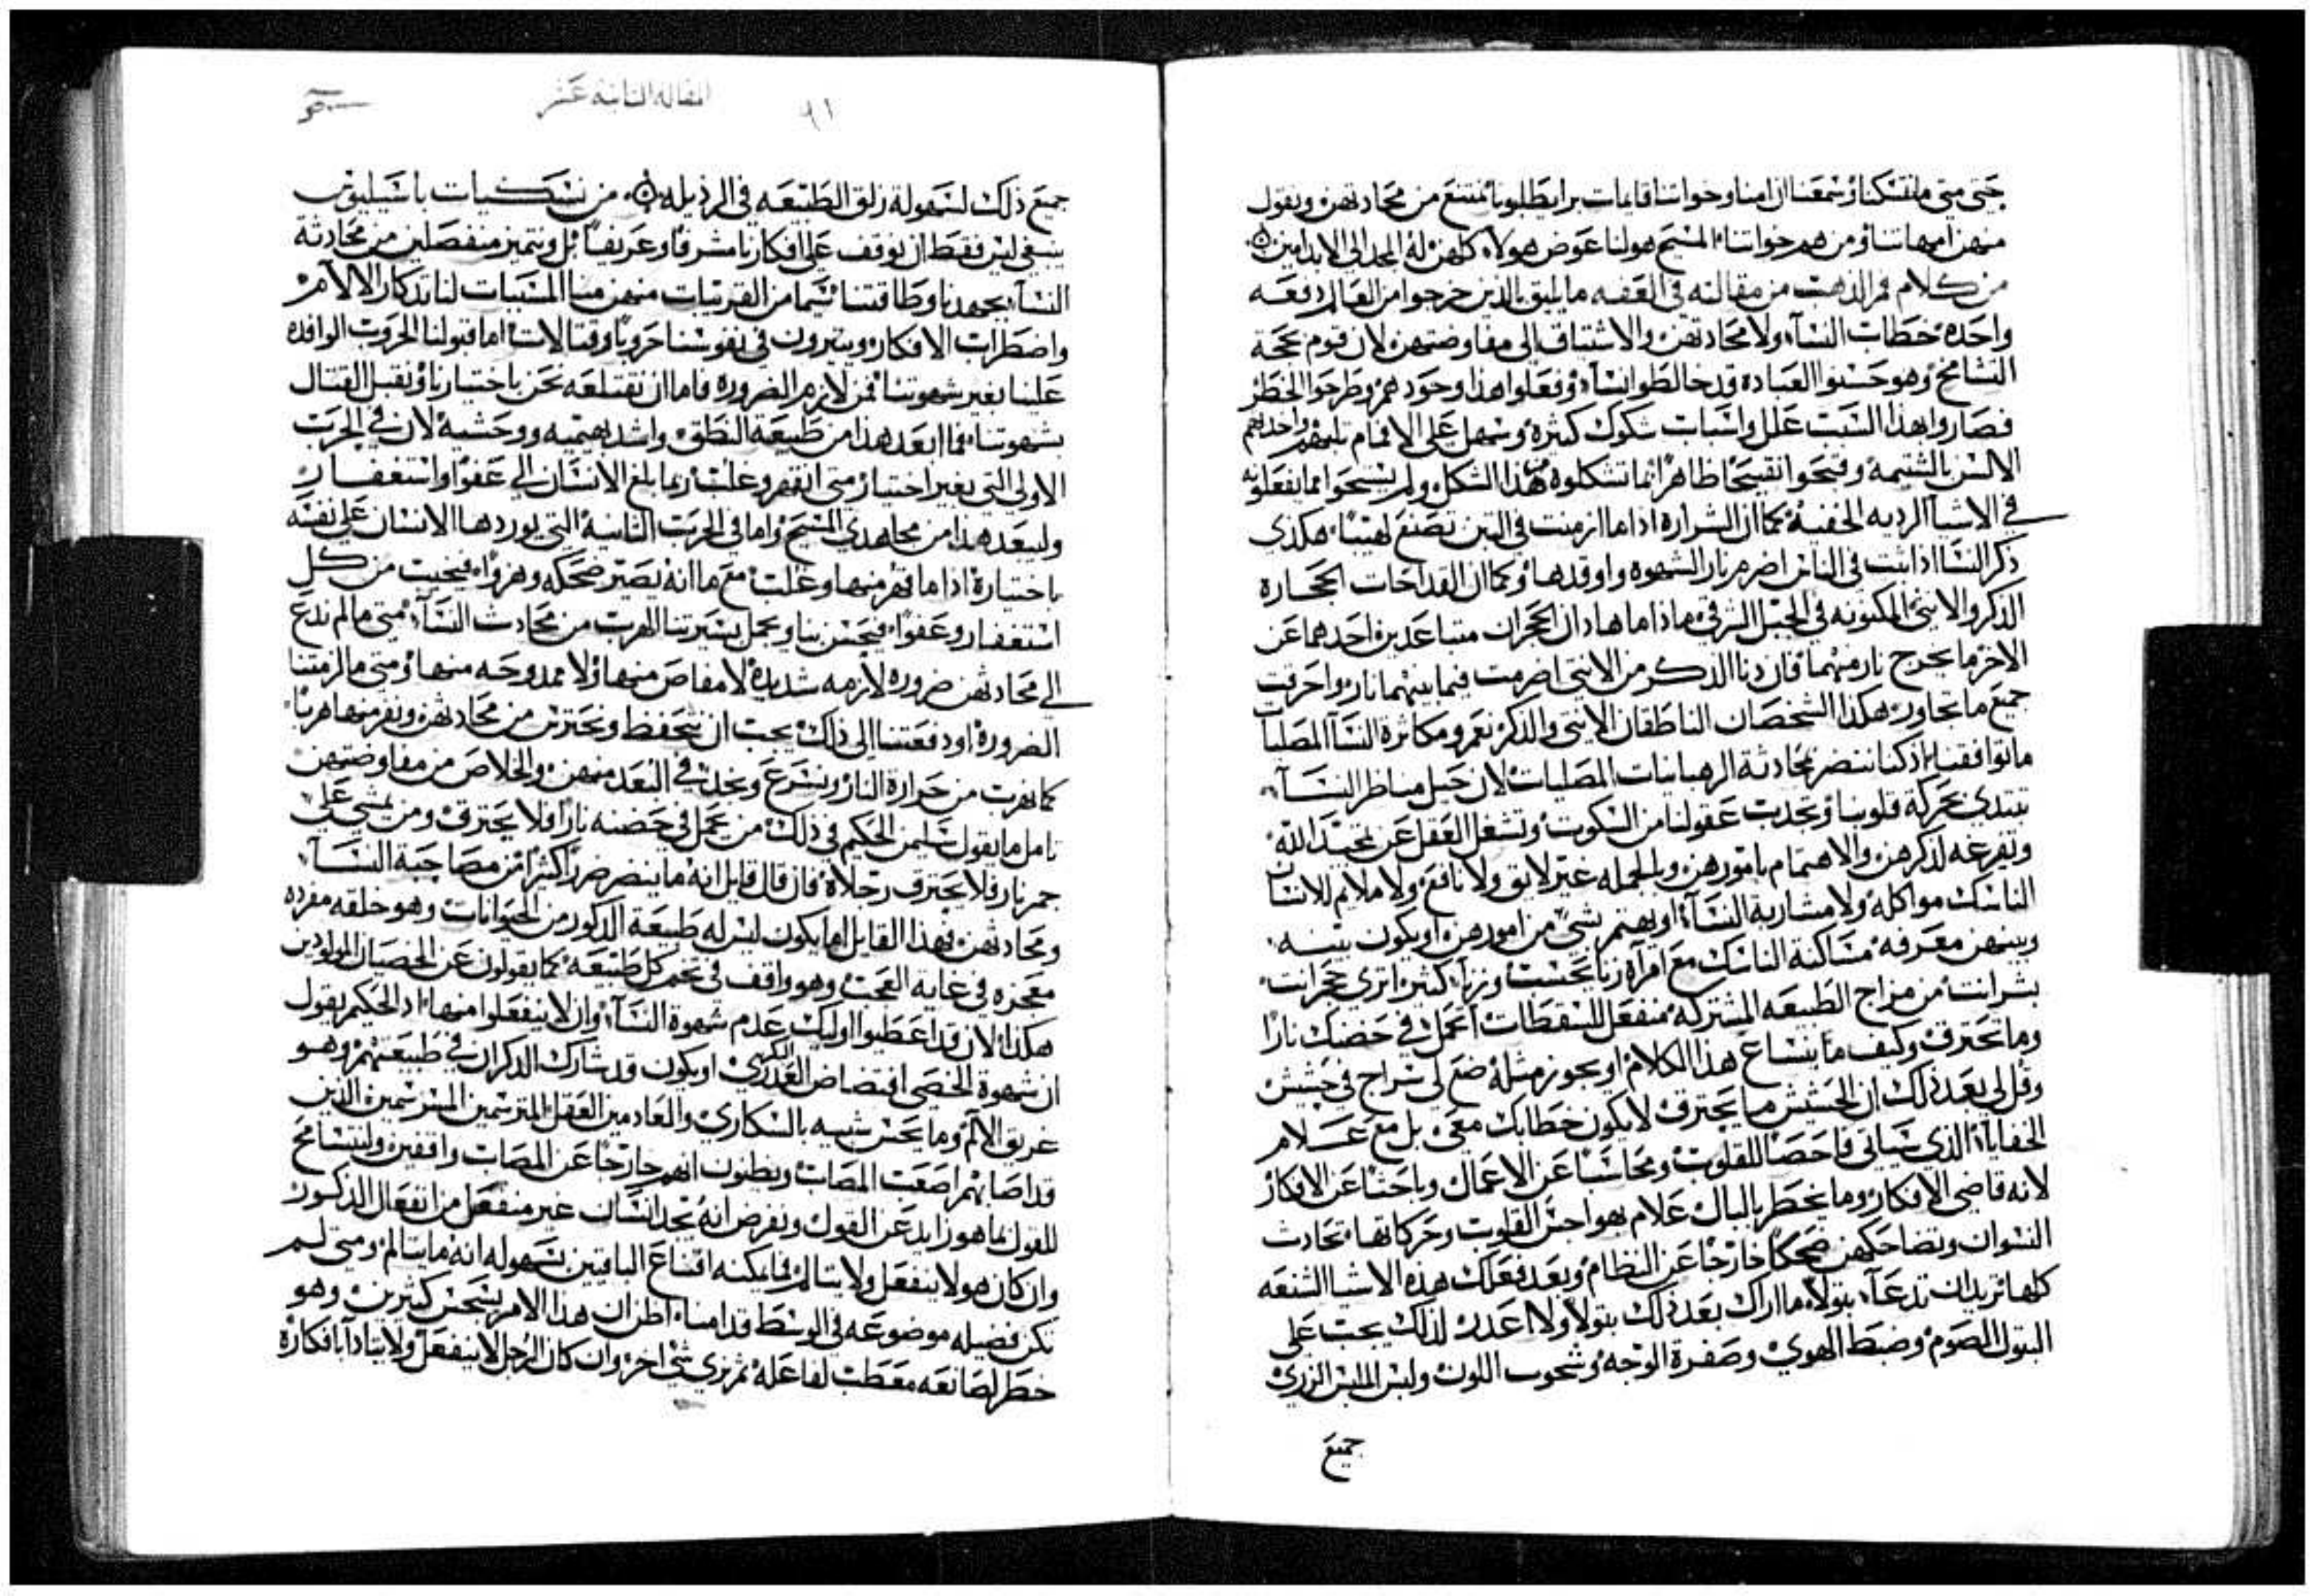 حتى متى ما تنسكنا وسمعنا ان امنا وخواتنا قايمات برا يطلبونا نمتنع من محادثتهن ونقول
منهن امهاتنا ومن هم خواتنا المسيح هو لنا عوض هولاء كلهن له المجد الى الابد امين
من كلام فم الذهب من مقالته في العفه ما يليق بالذين خرجوا من العالم دفعه
واحده خطاب النسآء ولا محادثتهن والاشتياق الى مفاوضتهن لان قوم بحجة
التشامخ وهو حسنوا العباده قد خالطوا النسآء وفعلوا هذا وحودهم وطرحوا الخطر
فصاروا بهذا السبب علل واسباب شكوك كثيره وسهل على الافمام ثلبهم واخذهم
الالسن بالشتيمه وقبحوا تقبيحًا ظاهرًا انما تشكلوه هذا الشكل ولم يستحوا مما يفعلونه
في الاشيآ الرديه الخفيه كما ان الشراره اذا ما ازمنت في التبن تصنع لهيبًا هكذى
ذكر النسا اذا ثبت في الناس اضرم نار الشهوه واوقدها وكما ان القداحات الحجاره
الذكر والانثى المكنونه في الجبل الشرقي ماذا ما هاذان الحجران متباعدين احدهما عن
الاخر ما يخرج نار منهما فان دنا الذكر من الانثى اضرمت فيما بينهما نار واحرقت
جميع ما تجاور هكذا الشخصان الناطقان الانثى والذكر نعم ومكاثرة النسآ المصليات
ما توافقنا اذ كنا ننضر بمحادثة الرهبانيات المصليات لان خيل مناظر النسآء
تبتدى بحركة قلوبنا وتجدب عقولنا من السكوت وتشغل العقل عن تمجيد الله
وتفرغه لذكرهن والاهتمام بامورهن وبالجمله غير لايق ولا نافع ولا ملايم للانسان
الناسك مواكله ولا مشاربة النسآء او يهتم بشي من امورهن او يكون بينه
وبينهن معرفه مساكنة الناسك مع امرآه زنا بحسب وزنآ كثير اترى حجر انت
بشر انت من مزاج الطبيعه المشتركه منفعل للسقطات اتحمل في حضنك نارًا
وما تحترق وكيف ما ينساغ هذا الكلام او يجوز مثله ضع لى سراج في حشيش
وقل لي بعد ذلك ان الحشيش ما يحترق لا يكون خطابك معى بل مع علام
الخفايا الذي سياتى فاحصًا للقلوب ومحاسبًا عن الاعمال وباحثًا عن الافكار
لانه قاضى الافكار وما يخطر بالبال علام بهواجس القلوب وحركاتها تحادث
النسوان وتضاحكهن ضحكًا خارجًا عن النظام وبعد فعلك هذه الاشيا الشنعه
كلها تريد ان تدعآ بتولاً ما اراك بعد ذلك بتولاً ولا اعدك لذلك يجب على
البتول الصوم وضبط الهوى وصفرة الوجه وشحوب اللون ولبس الملبس الزرى
جميع
المقاله الثانيه عشر
٩١
جميع ذلك لسهولة زلق الطبيعه في الرذيله من نسكيات باسيليوس
ينبغى ليس فقط ان نوقف على افكارنا مشرفًا وعريفًا بل ونتميز منفصلين من محادثة
النسآء بجهدنا وطاقتنا سيما من القريبات منهن منا المسببات لنا بتدكار الالآم
واضطراب الافكار ويثيرون في نفوسنا حروبًا وقتالات اما قبولنا الحروب الوافده
علينا بغير شهوتنا فمن لازم الضروره فاما ان نفتلعه نحن باختيارنا ونقبل القتال
بشهوتنا فما ابعد هذا من طبيعة النطق واشد بهيميه ووحشيه لان في الحرب
الاولى التى بغير اختيار متى انقهر وغلب ربما بلغ الانسان الى عفوًا واستغفار
وليبعد هذا من مجاهدى المسيح واما في الحرب الثانيه التى يوردها الانسان على نفسه
باختياره اذا ما قهر منها وغلب مع ما انه يصير ضحكه وهزوًا فيخيب من كل
استغفار وعفوًا فيحسن بنا ويجمل بسيرتنا الهرب من محادث النسآء متى ما لم تدع
الى محادثتهن ضروره لازمه شديده لا مفاص منها ولا ممدوحه منها ومتى ما لزمتنا
الضروره او دفعتنا الى ذلك يجب ان نتحفظ ونحترس من محادثتهن ونفر منها هربًا
كما نهرب من حرارة النار ونسرع ونجد في البعد منهن والخلاص من مفاوضتهن
تامل ما يقول سليمن الحكيم في ذلك من يحمل في حضنه نارًا فلا يحترق ومن يمشى على
جمر نار فلا يحترق رجلاه فان قال قايل انه ما ينضر ضررًا كثيرًا من مصاحبة النسآء
ومحادثتهن فهذا القايل اما يكون ليس له طبيعة الذكور من الحيوانات وهو خلقه مفرده
معجزه في غاية العجب وهو واقف في تخم كل طبيعه كما يقولون عن الخصيان المولودين
هكذا الان قد اعطيوا اوليك عدم شهوة النسآء وان لا ينفعلوا منها اذ الحكيم يقول
ان شهوة الخصى افتضاض العذرى البكر او يكون قد شارك الذكران في طبيعتهم وهو
غريق الالم وما يحس شبيه بالسكارى والعادمين العقل المترسمين المبرسمين الذين
قد اصابهم اصعب المصاب ويظنون انهم خارجًا عن المصاب واقفين ولنتسامح
للقول بما هو زايد عن القول ونفرض انه يجد انسان غير منفعل من انفعال الذكور
وان كان هو لا ينفعل ولا يتالم فما يمكنه اقناع الباقين بسهوله انه ما يتالم ومتى لم
تكن فضيله موضوعه في الوسط قدامنا اظن ان هذا الامر ينجس كثيرين وهو
خطر لصانعه معطب لفاعله ثم نرى شي اخر وان كان الرجل لا ينفعل ولا يتادآ بافكاره